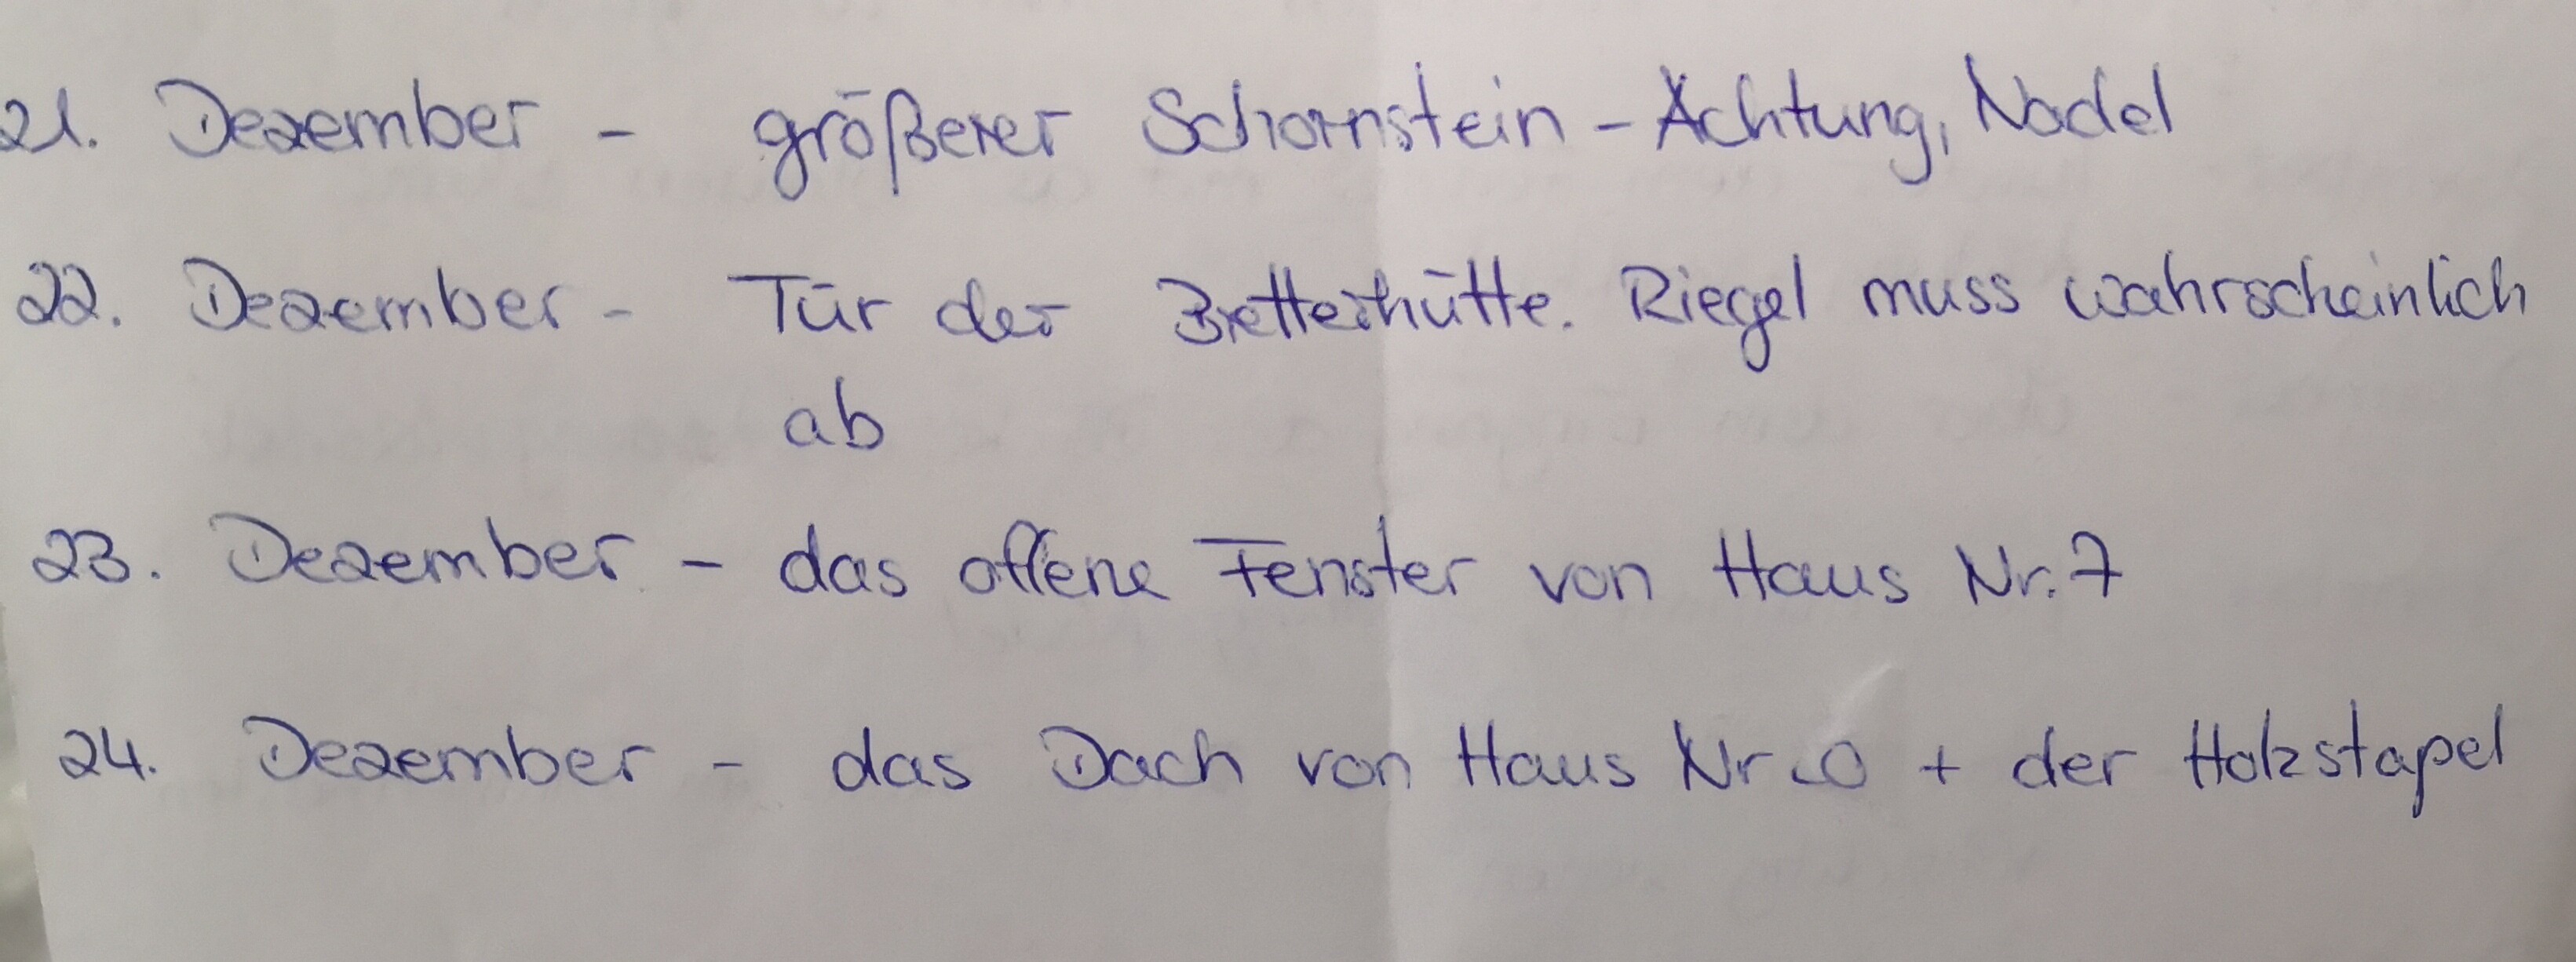 21. Dezember - größerer Schornstein - Achtung, Nadel
22. Dezember - Tür der Bretterhütte. Riegel muss wahrscheinlich
ab
23. Dezember - das offene Fenster von Haus Nr. 7
24. Dezember - das Dach von Haus Nr. 0 + der Holzstapel